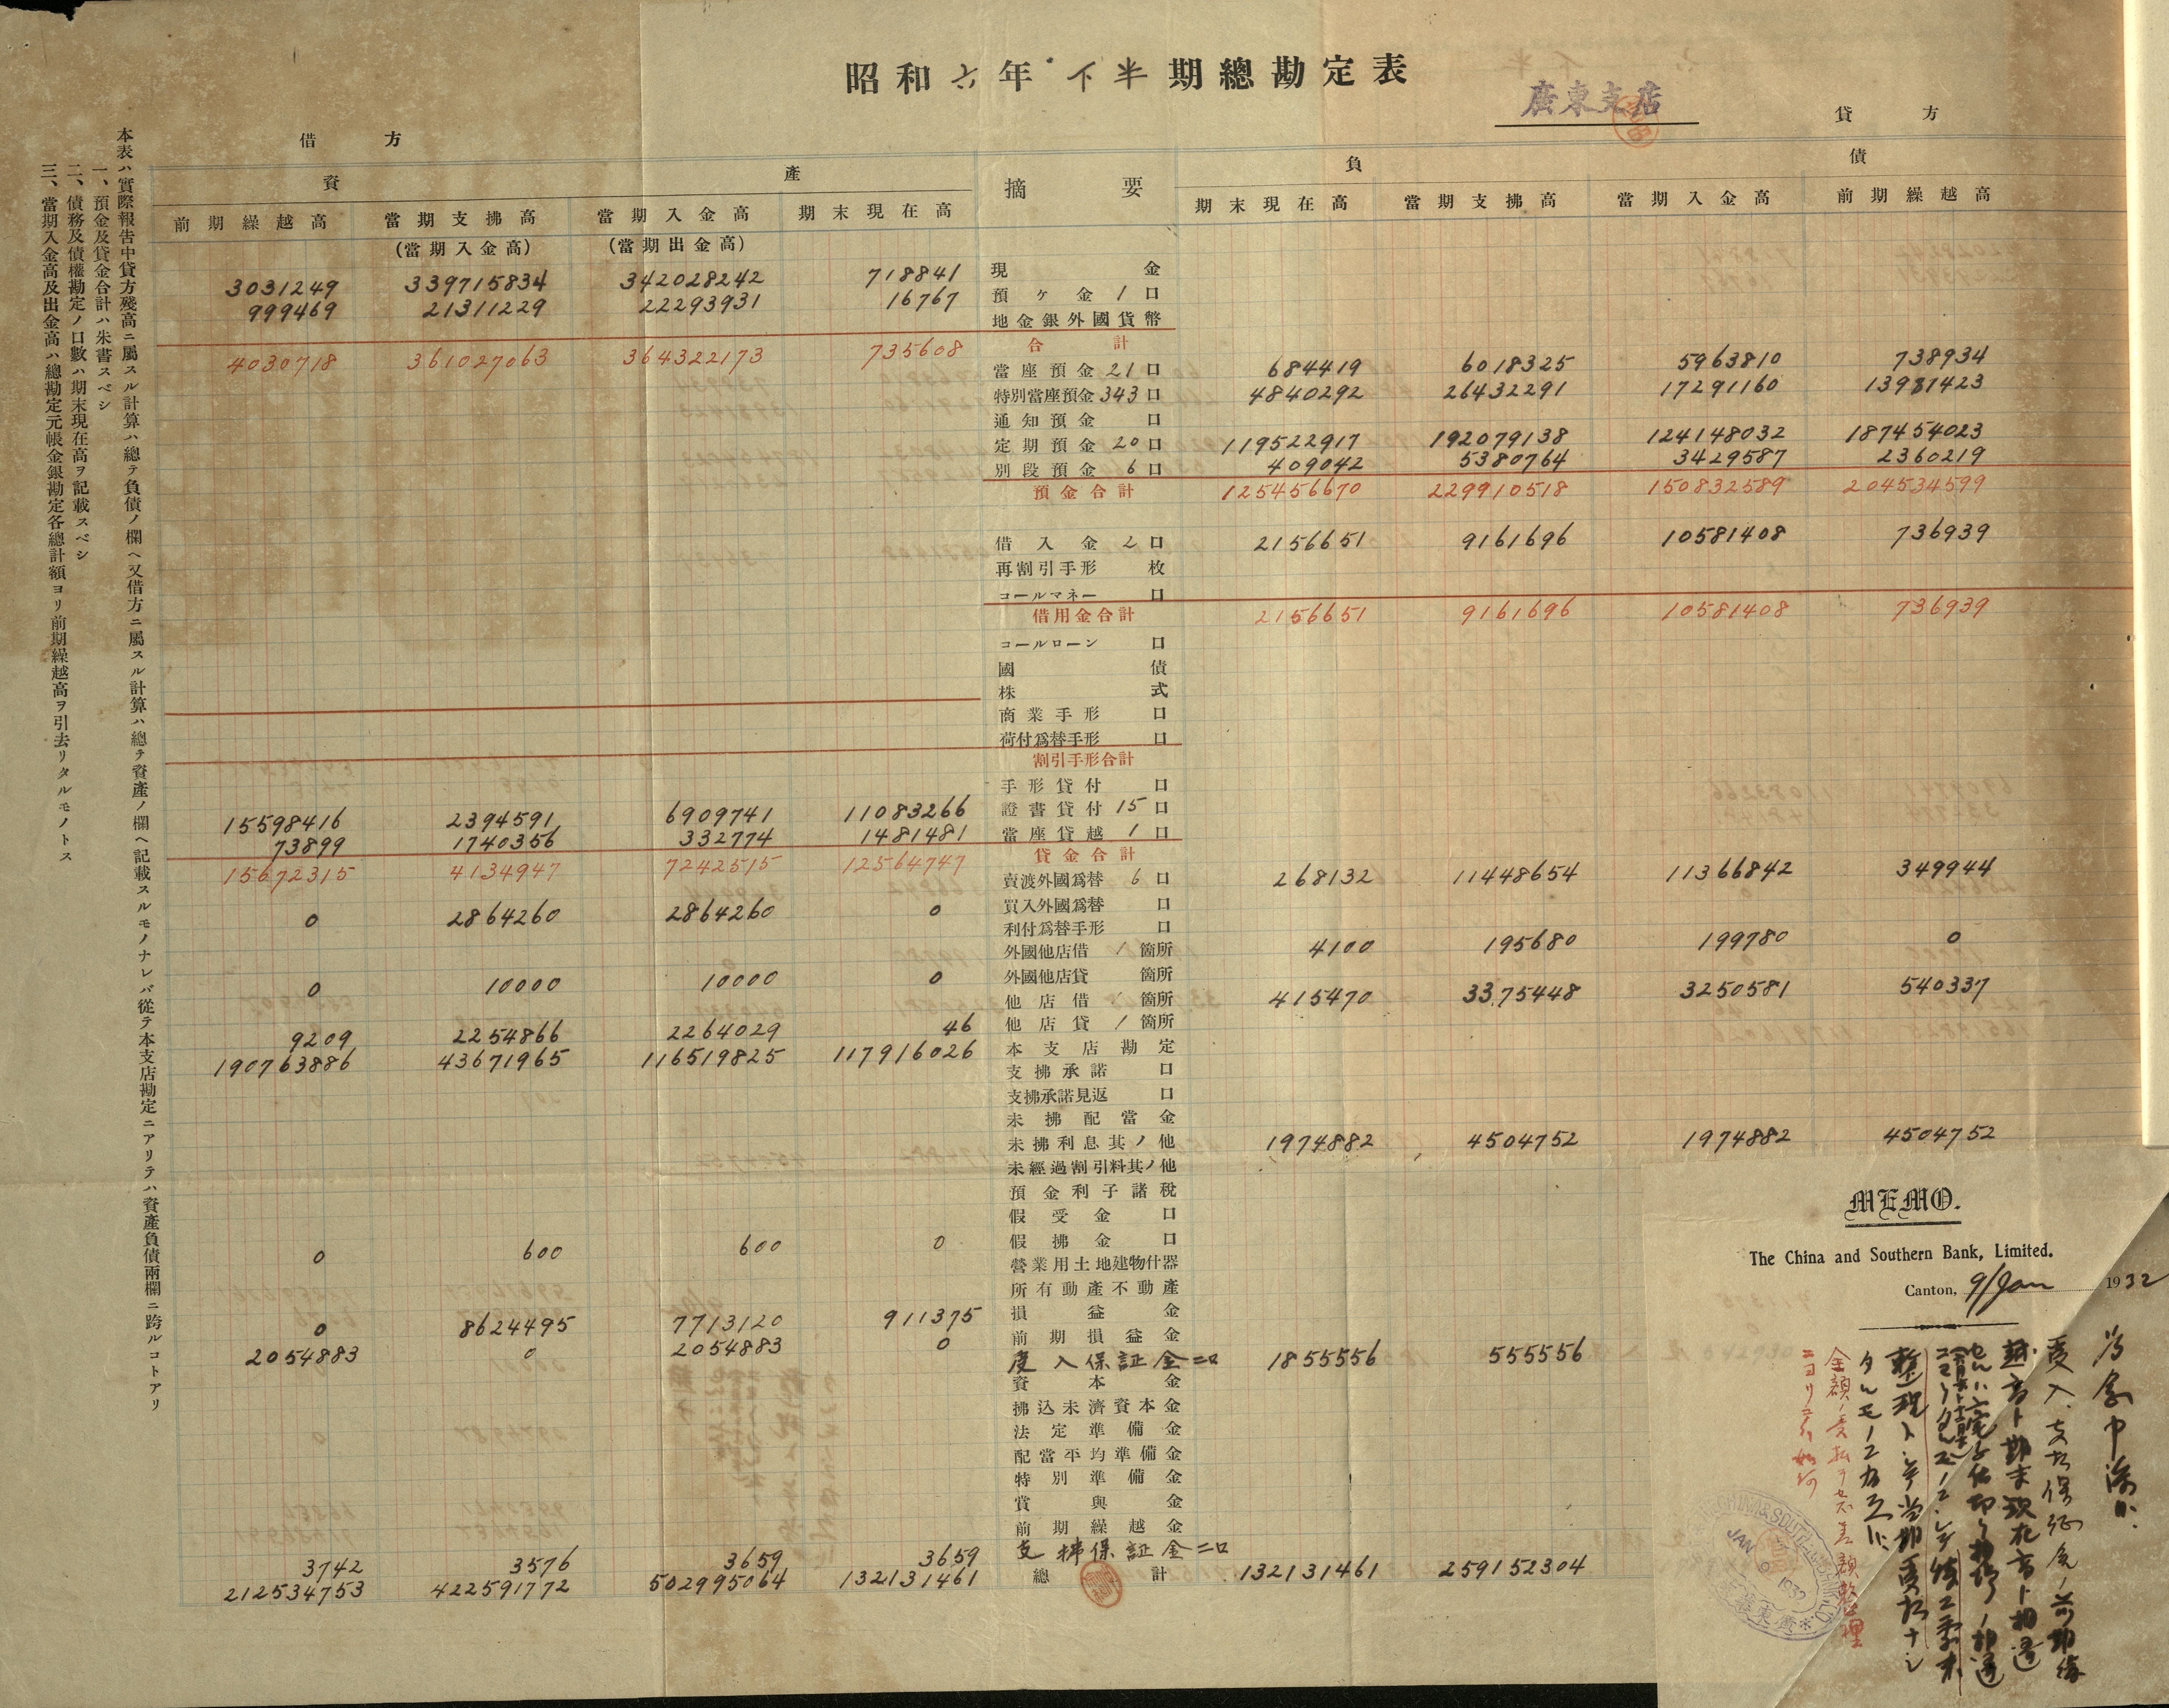 昭和六年下半期總勘定表
廣東支店
借方
貸方
資產
摘要
負債
前期繰越高 當期支拂高 當期入金高 期末現在高 期末現在高 當期支拂高 當期入金高 前期繰越高
(當期入金高) (當期出金高)
3031249 339715834 342028242 718841 現金
999469 21311229 22293931 16767 預ケ金 1 口
地金銀外國貨幣
4030718 361027063 364322173 735608 合計
當座預金 21 口 684419 6018325 5963810 738934
特別當座預金 343 口 4840292 26432291 17291160 13981423
通知預金 口
定期預金 20 口 119522917 192079138 124148032 187454023
別段預金 6 口 409042 5380764 3429587 2360219
預金合計 125456670 229910518 150832589 204534599
借入金 2 口 2156651 9161696 10581408 736939
再割引手形 枚
コールマネー 口
借用金合計 2156651 9161696 10581408 736939
コールローン 口
國債
株式
商業手形 口
荷付爲替手形 口
割引手形合計
手形貸付 口
15598416 2394591 6909741 11083266 證書貸付 15 口
73899 1740356 332774 1481481 當座貸越 1 口
15672315 4134947 7242515 12564747 貸金合計
賣渡外國爲替 6 口 268132 11448654 11366842 349944
0 2864260 2864260 0 買入外國爲替 口
利付爲替手形 口
外國他店借 1 箇所 4100 195680 199780 0
0 10000 10000 0 外國他店貸 箇所
他店借 箇所 415470 3375448 3250581 540337
9209 2254866 2264029 46 他店貸 1 箇所
190763886 43671965 116519825 117916026 本支店勘定
支拂承諾 口
支拂承諾見返 口
未拂配當金
未拂利息其ノ他 1974882 4504752 1974882 4504752
未經過割引料其ノ他
預金利子諸稅
假受金 口
0 600 600 0 假拂金 口
營業用土地建物什器
所有動產不動產
0 8624495 7713120 911375 損益金
2054883 0 2054883 0 前期損益金
受入保証金二口 1855556 555556
資本金
拂込未濟資本金
法定準備金
配當平均準備金
特別準備金
賞與金
前期繰越金
3742 3576 3659 3659 支拂保証金二口
212534753 422591772 502995064 132131461 總計 132131461 259152304
本表ハ實際報告中貸方殘高ニ屬スル計算ハ總テ負債ノ欄ヘ又借方ニ屬スル計算ハ總テ資產ノ欄ヘ記載スルモノナレバ從テ本支店勘定ニアリテハ資產負債兩欄ニ跨ルコトアリ
一、預金及貸金合計ハ朱書スベシ
二、債務及債權勘定ノ口數ハ期末現在高ヲ記載スベシ
三、當期入金高及出金高ハ總勘定元帳金銀勘定各總計額ヨリ前期繰越高ヲ引去リタルモノトス
MEMO.
The China and Southern Bank, Limited.
Canton, 9/Jan 1932
受入支払保証金ノ前期繰
越高ト期末現在高ト相違
整理トシテ当期受払ナシ
金額ノ受払ヲセズ差額整理
JAN 9 1932